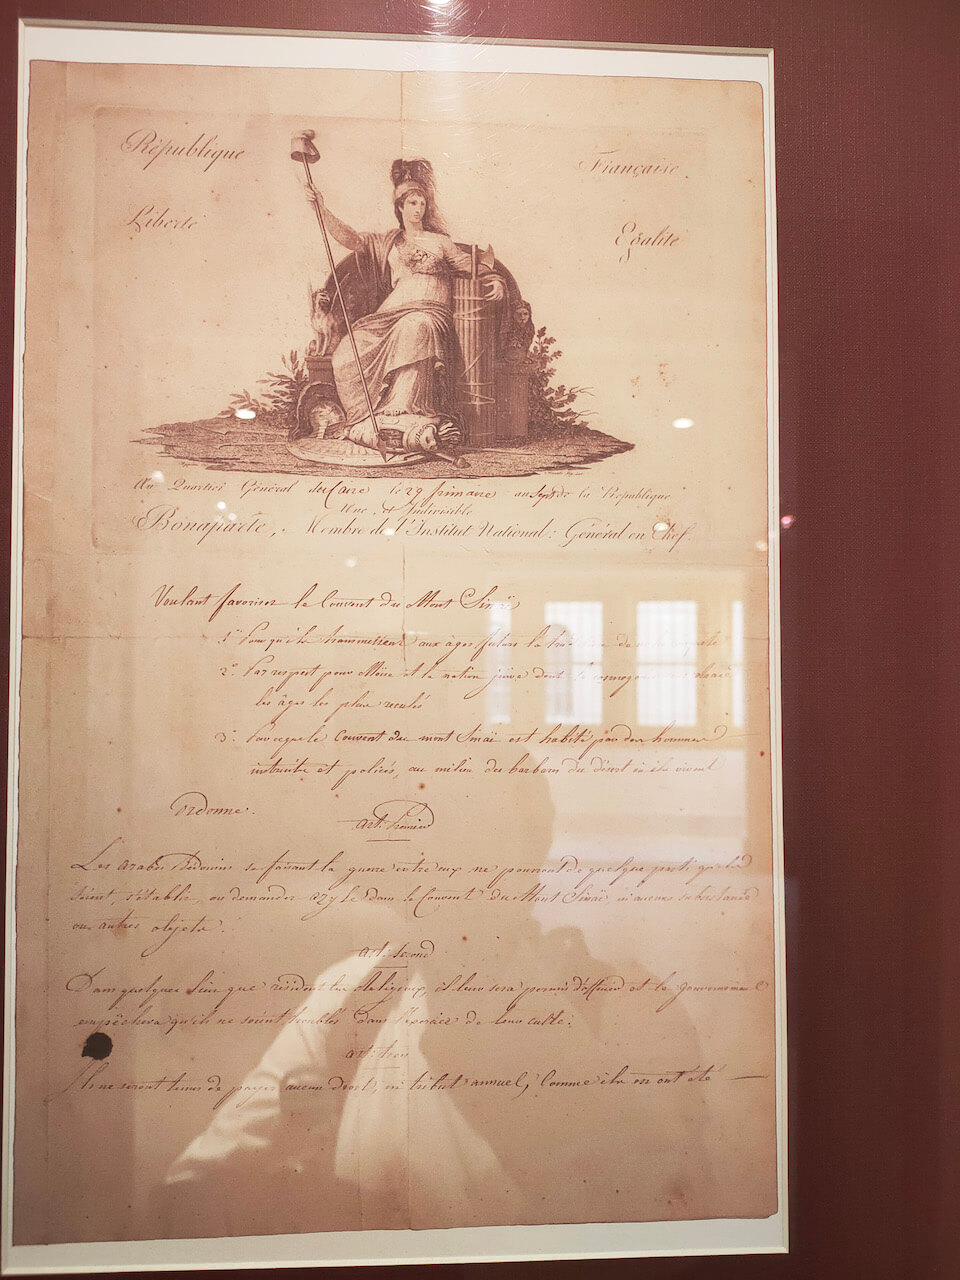 République Française
Liberté Egalité
Au Quartier Général du Caire le 29 frimaire an Sept de la République
Une et Indivisible
Bonaparte, Membre de l'Institut National; Général en Chef.
Voulant favoriser le Couvent du Mont Sinaï
1° Pour qu'il transmettent aux âges futurs la
2° Par respect pour Moïse et la nation juive dont la cosmogonie
les âges les plus reculés
3° Parceque le Couvent du mont Sinaï est habité par des hommes
instruits et policés, au milieu des barbares du désert où ils vivent
Ordonne.
art. Premier
Les arabes Bédouins se faisant la guerre entre eux ne pourront de quelque parti qu'ils
soient, s'établir, ou demander azyle dans le Couvent du Mont Sinaï, ni aucune subsistance
ou autres objets.
art. second
Dans quelques lieux que résident les Religieux, il leur sera permis d'officier et le gouvernement
empêchera qu'ils ne soient troublés dans l'exercice de leur culte.
art. trois
Ils ne seront tenus de payer aucun droit, ni tribut annuel, Comme ils en ont été